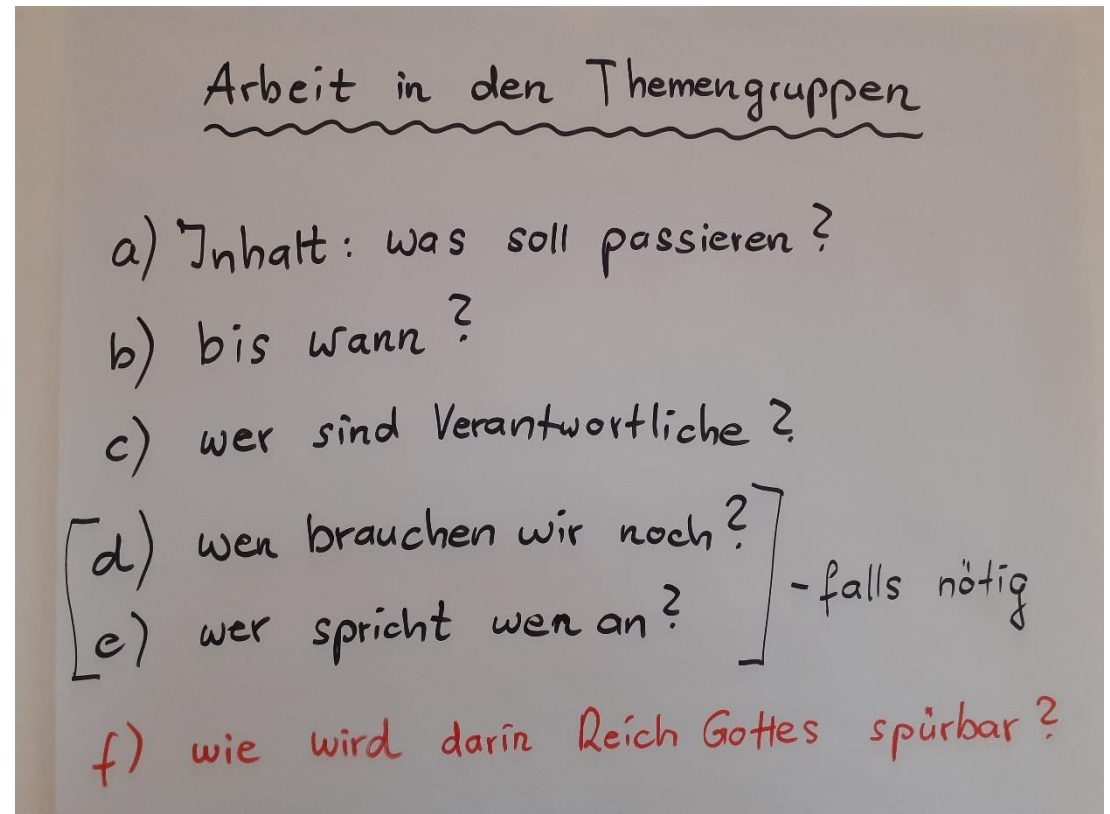 Arbeit in den Themengruppen
a) Inhalt: was soll passieren?
b) bis wann?
c) wer sind Verantwortliche?
[d) wen brauchen wir noch?
e) wer spricht wen an?] - falls nötig
f) wie wird darin Reich Gottes spürbar?